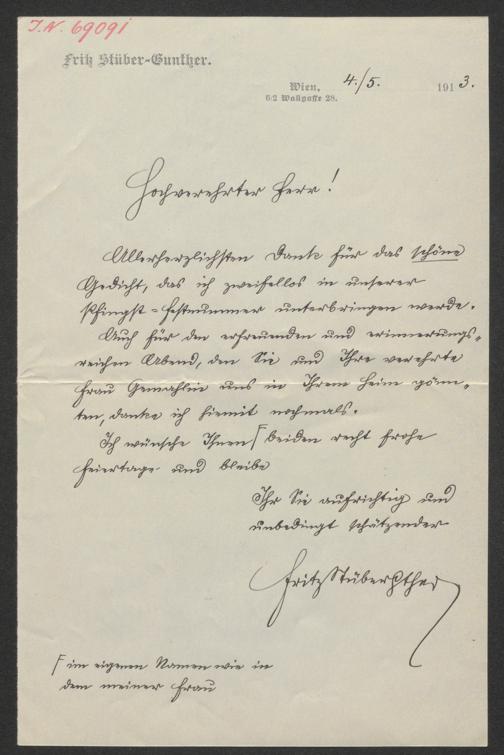 I.N. 69091
Fritz Stüber-Gunther.
Wien, 4./5. 1913.
6/2 Wallgasse 28.
Hochverehrter Herr!
Allerherzlichsten Dank für das schöne
Gedicht, das ich zweifellos in unserer
Pfingst-Festnummer unterbringen werde.
Auch für den erfreuenden und erinnerungs-
reichen Abend, den Sie und Ihre verehrte
Frau Gemahlin uns in Ihrem Heim gönn-
ten, danke ich hiemit nochmals.
Ich wünsche Ihnen Γ beiden recht frohe
Feiertage und bleibe
Ihr Sie aufrichtig und
unbedingt schätzender
Fritz Stüber Gther
Γ im eigenen Namen wie in
dem meiner Frau